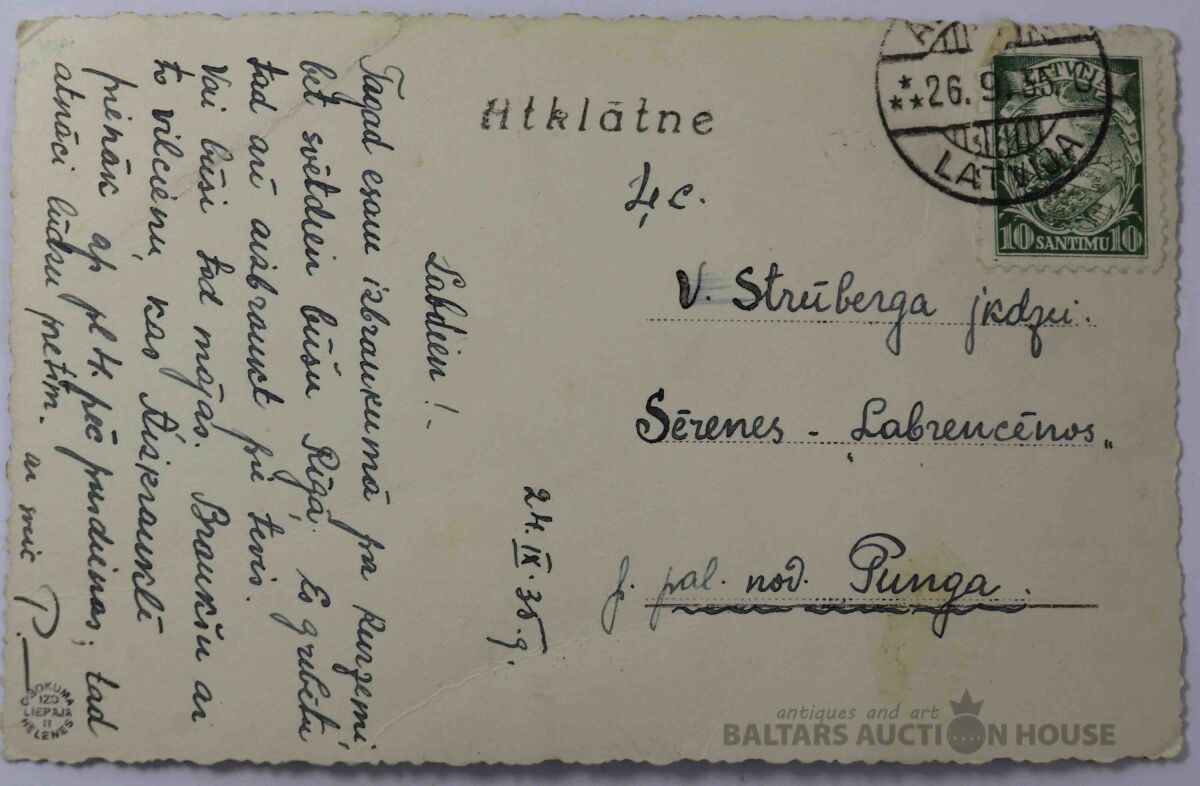 Atklātne
26. 9. 35. 0
LATVIJA
LATVIJA
10 SANTIMU 10
Ļ, c.
V. Strūberga jkdzei.
Sērenes - „Labrencēnos"
p. pal. nod. Punga.
24. IX. 35. g.
Labdien! -
Tagad esam izbraukumā pa Kurzemi,
bet svētdien būšu Rīgā. Es gribētu
tad arī aizbraukt pie tevis.
Vai būsi tad mājās. Braukšu ar
to vilcienu, kas Aizkrauklē
pienāk ap pl. 4. pēc pusdienas; tad
atnāci lūdzu pretim.
ar sveic P.
IZD
LIEPĀJĀ
HELENES
antiques and art
BALTARS AUCTION HOUSE